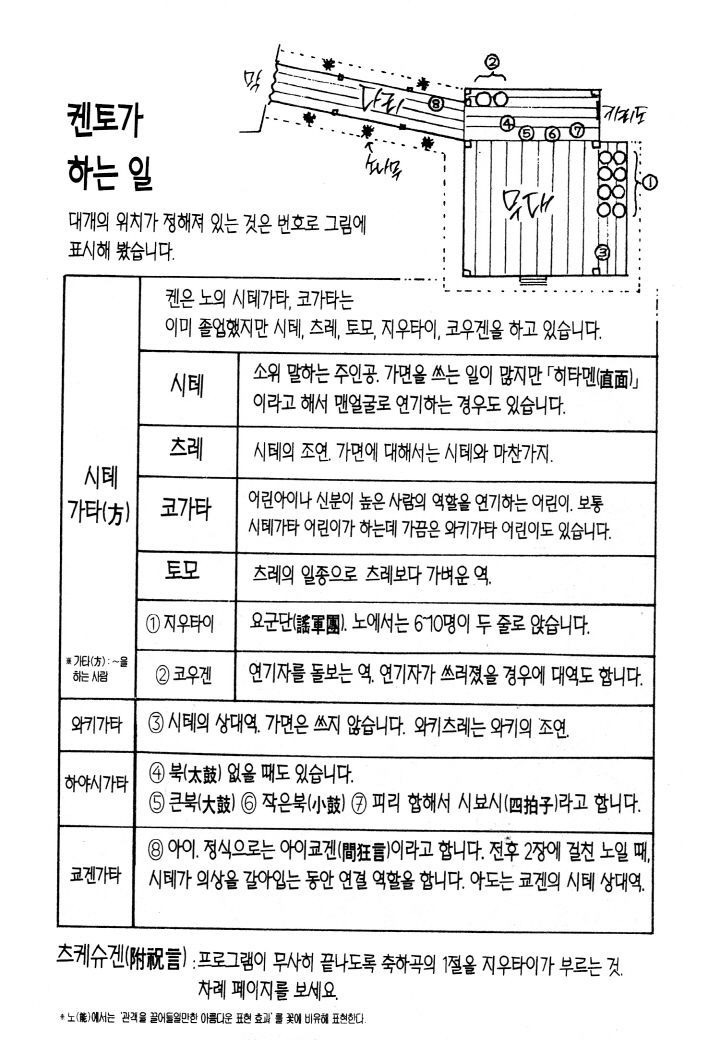 켄토가
하는 일
대개의 위치가 정해져 있는 것은 번호로 그림에
표시해 봤습니다.
②
막
⑧
④
⑤
⑥
⑦
①
소나무
무대
③
켄은 노의 시테가타, 코가타는
이미 졸업했지만 시테, 츠레, 토모, 지우타이, 코우겐을 하고 있습니다.
시테
가타(方)
※ 가타(方) : ~을
하는 사람
시테
소위 말하는 주인공. 가면을 쓰는 일이 많지만 「히타멘(直面)」
이라고 해서 맨얼굴로 연기하는 경우도 있습니다.
츠레
시테의 조연. 가면에 대해서는 시테와 마찬가지.
코가타
어린아이나 신분이 높은 사람의 역할을 연기하는 어린이. 보통
시테가타 어린이가 하는데 가끔은 와키가타 어린이도 있습니다.
토모
츠레의 일종으로 츠레보다 가벼운 역.
① 지우타이
요군단(謠軍團). 노에서는 6~10명이 두 줄로 앉습니다.
② 코우겐
연기자를 돌보는 역. 연기자가 쓰러졌을 경우에 대역도 합니다.
와키가타
③ 시테의 상대역. 가면은 쓰지 않습니다. 와키츠레는 와키의 조연.
하야시가타
④ 북(太鼓) 없을 때도 있습니다.
⑤ 큰북(大鼓) ⑥ 작은북(小鼓) ⑦ 피리 합해서 시보시(四拍子)라고 합니다.
쿄겐가타
⑧ 아이. 정식으로는 아이쿄겐(間狂言)이라고 합니다. 전후 2장에 걸친 노일 때,
시테가 의상을 갈아입는 동안 연결 역할을 합니다. 아도는 쿄겐의 시테 상대역.
츠케슈겐(附祝言) : 프로그램이 무사히 끝나도록 축하곡의 1절을 지우타이가 부르는 것.
차례 페이지를 보세요.
* 노(能)에서는 '관객을 끌어들일만한 아름다운 표현 효과'를 꽃에 비유해 표현한다.